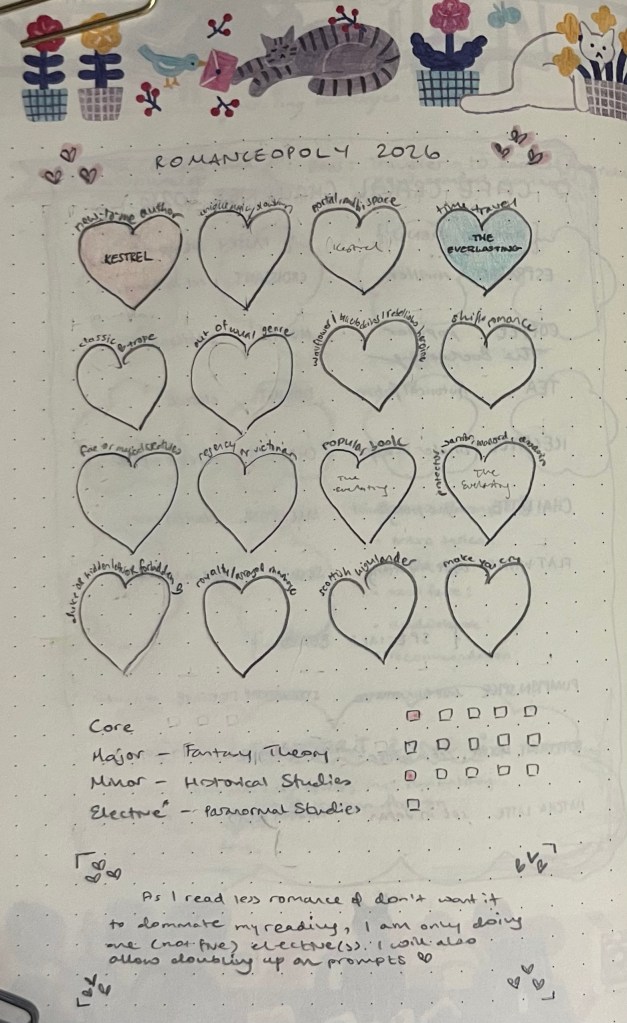 ROMANCEOPOLY 2026
new-to-me author
KESTREL
unique magic system
portal, multi, space
Kestrel
time travel
THE EVERLASTING
classic trope
out of usual genre
wallflower / bluestocking / rebellious heroine
shifter romance
fae or magical creatures
regency or victorian
popular book
The Everlasting
protector, vampire, monster, assassin
The Everlasting
duke or hidden love or forbidden
royalty / arranged marriage
scottish highlander
make you cry
Core
Major - Fantasy Theory
Minor - Historical Studies
Elective* - Paranormal Studies
As I read less romance & don't want it
to dominate my reading, I am only doing
one (not five) elective(s). I will also
allow doubling up on prompts ♡